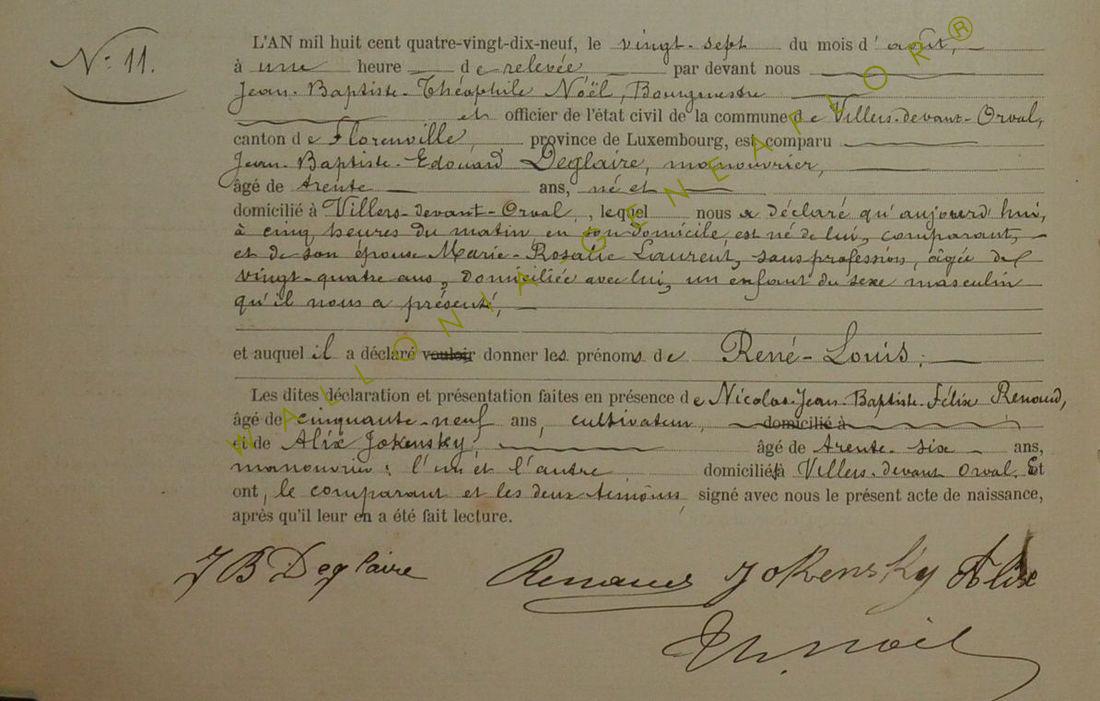 N° 11.
L'AN mil huit cent quatre-vingt-dix-neuf, le vingt-sept du mois d'août,
à une heure de relevée par devant nous
Jean-Baptiste-Théophile Noël, Bourgmestre
et officier de l'état civil de la commune de Villers-devant-Orval,
canton de Florenville, province de Luxembourg, est comparu
Jean-Baptiste-Edouard Deglaire, manouvrier,
âgé de trente ans, né et
domicilié à Villers-devant-Orval, lequel nous a déclaré qu'aujourd'hui,
à cinq heures du matin, en son domicile, est né de lui, comparant,
et de son épouse Marie-Rosalie Laurent, sans profession, âgée de
vingt-quatre ans, domiciliée avec lui, un enfant du sexe masculin
qu'il nous a présenté,
et auquel il a déclaré vouloir donner les prénoms de René-Louis.
Les dites déclaration et présentation faites en présence de Nicolas-Jean-Baptiste-Félix Renaud,
âgé de cinquante-neuf ans, cultivateur, domicilié à
et de Alix Jokensky, âgé de trente-six ans,
manouvrier; l'un et l'autre domiciliés à Villers-devant-Orval. Et
ont, le comparant et les deux témoins signé avec nous le présent acte de naissance,
après qu'il leur en a été fait lecture.
JB Deglaire Renaud Jokensky Alix
Th. Noël
WALLONIA GENEAFLOR®